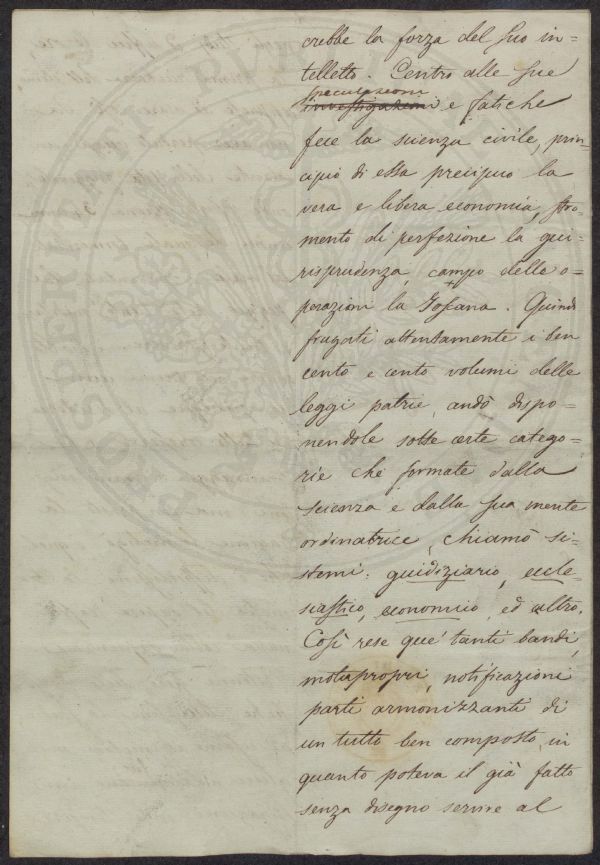 crebbe la forza del suo in=
telletto. Centro alle sue
speculazioni
investigazioni e fatiche
fece la scienza civile, prin-
cipio di essa precipuo la
vera e libera economia, stro-
mento di perfezione la giu-
risprudenza, campo delle o-
perazioni la Toscana. Quindi
frugati attentamente i ben
cento e cento volumi delle
leggi patrie, andò dispo-
nendole sotto certe catego-
rie che formate dalla
scienza e dalla sua mente
ordinatrice, chiamò si-
stemi: giudiziario, eccle-
siastico, economico, ed altro.
Così rese que' tanti bandi,
motupropri, notificazioni
parti armonizzanti di
un tutto ben composto, in
quanto poteva il già fatto
senza disegno servire al